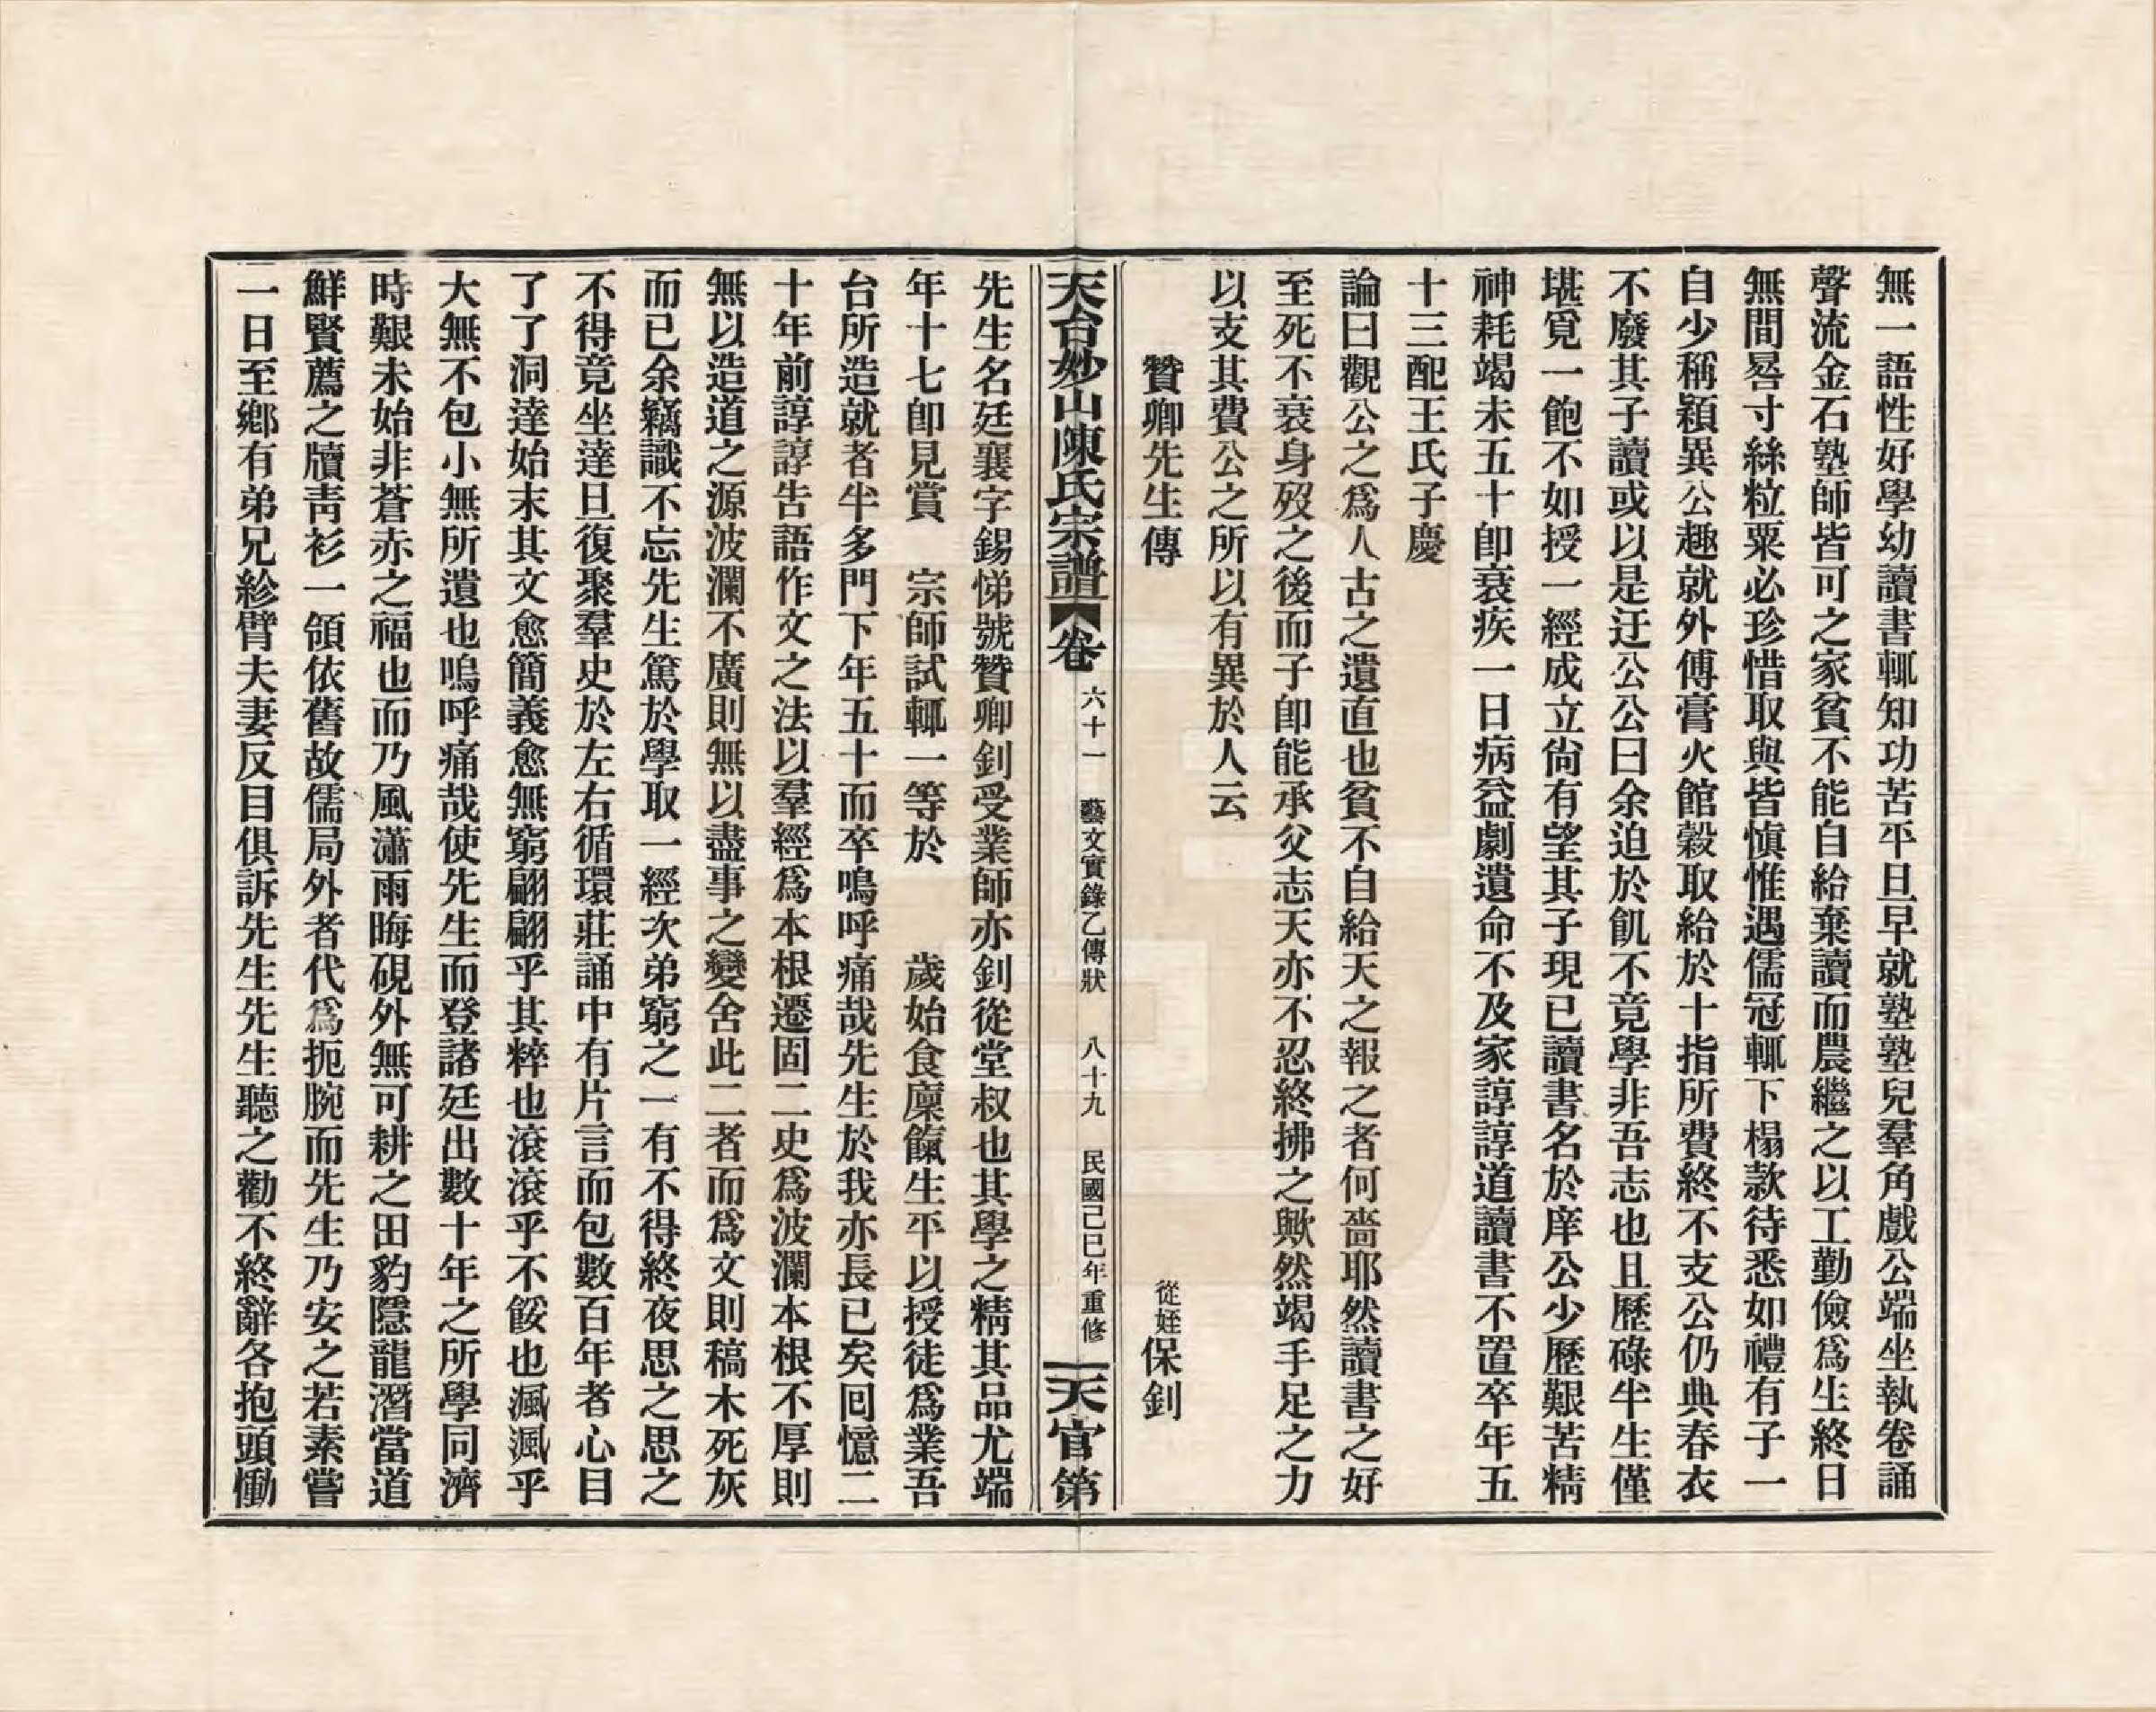 無一語性好學幼讀書輒知功苦平旦早就塾塾兒羣角戲公端坐執卷誦
聲流金石塾師皆可之家貧不能自給棄讀而農繼之以工勤儉爲生終日
無間晷寸絲粒粟必珍惜取與皆愼惟遇儒冠輒下榻款待悉如禮有子一
自少稱穎異公趣就外傅膏火館穀取給於十指所費終不支公仍典春衣
不廢其子讀或以是迂公公曰余迫於飢不竟學非吾志也且歷碌半生僅
堪覓一飽不如授一經成立尙有望其子現已讀書名於庠公少歷艱苦精
神耗竭未五十卽衰疾一日病益劇遺命不及家諄諄道讀書不置卒年五
十三配王氏子慶
論曰觀公之爲人古之遺直也貧不自給天之報之者何嗇耶然讀書之好
至死不衰身歿之後而子卽能承父志天亦不忍終拂之歟然竭手足之力
以支其費公之所以有異於人云
贊卿先生傳　從姪保釗
天台妙山陳氏宗譜　卷六十一　藝文實錄乙傳狀　八十九　民國己巳年重修　天官第
先生名廷襄字錫悌號贊卿釗受業師亦釗從堂叔也其學之精其品尤端
年十七卽見賞　宗師試輒一等於　　歲始食廩餼生平以授徒爲業吾
台所造就者半多門下年五十而卒嗚呼痛哉先生於我亦長已矣囘憶二
十年前諄諄告語作文之法以羣經爲本根遷固二史爲波瀾本根不厚則
無以造道之源波瀾不廣則無以盡事之變舍此二者而爲文則稿木死灰
而已余竊識不忘先生篤於學取一經次弟窮之一有不得終夜思之思之
不得竟坐達旦復聚羣史於左右循環莊誦中有片言而包數百年者心目
了了洞達始末其文愈簡義愈無窮翩翩乎其粹也滾滾乎不餒也渢渢乎
大無不包小無所遺也嗚呼痛哉使先生而登諸廷出數十年之所學同濟
時艱未始非蒼赤之福也而乃風瀟雨晦硯外無可耕之田豹隱龍潛當道
鮮賢薦之牘靑衫一領依舊故儒局外者代爲扼腕而先生乃安之若素嘗
一日至鄕有弟兄紾臂夫妻反目俱訴先生先生聽之勸不終辭各抱頭慟